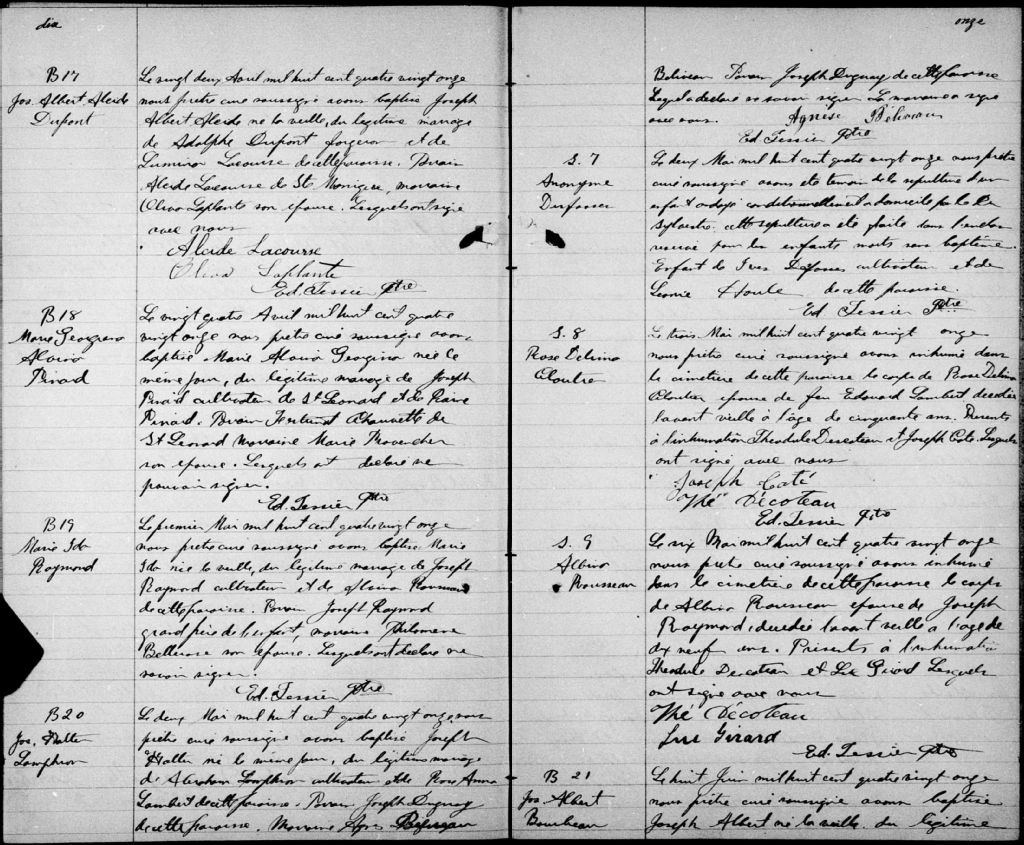 dix
B 17
Jos. Albert Alcide
Dupont
Le vingt deux Avril mil huit cent quatre vingt onze
nous prêtre curé soussigné avons baptisé Joseph
Albert Alcide né la veille, du légitime mariage
de Adolphe Dupont forgeron et de
Lumina Lacourse de cette paroisse. Parrain
Alcide Lacourse de Ste Monique, marraine
Oliva Laplante son épouse. Lesquels ont signé
avec nous
Alcide Lacourse
Oliva Laplante
Ed. Tessier Ptre
B 18
Marie Georgina
Alvina
Pinard
Le vingt quatre Avril mil huit cent quatre
vingt onze nous prêtre curé soussigné avons
baptisé Marie Alvina Georgina née le
même jour, du légitime mariage de Joseph
Pinard cultivateur de St Léonard et de
Pinard. Parrain Chaurette de
St Léonard marraine Marie Provencher
son épouse. Lesquels ont déclaré ne
pouvoir signer.
Ed. Tessier Ptre
B 19
Marie Ida
Raymond
Le premier Mai mil huit cent quatre vingt onze
nous prêtre curé soussigné avons baptisé Marie
Ida née la veille, du légitime mariage de Joseph
Raymond cultivateur et de Alvina Rousseau
de cette paroisse. Parrain Joseph Raymond
grand père de l'enfant, marraine Philomène
Bellerose son épouse. Lesquels ont déclaré ne
savoir signer.
Ed. Tessier Ptre
B 20
Jos. Walter
Le deux Mai mil huit cent quatre vingt onze nous
prêtre curé soussigné avons baptisé Joseph
Walter né le même jour, du légitime mariage
de Abraham cultivateur et de Rose Anna
Lambert de cette paroisse. Parrain Joseph Duguay
de cette paroisse. Marraine Agnès Béliveau
onze
Béliveau Parrain Joseph Duguay de cette paroisse
Lequel a déclaré ne savoir signer La marraine a signé
avec nous. Agnèse Béliveau
Ed. Tessier Ptre
S. 7
Anonyme
Desfossés
Le deux Mai mil huit cent quatre vingt onze nous prêtre
curé soussigné avons été témoin de la sépulture d'un
enfant ondoyé conditionnellement à domicile par le Dr
Sylvestre. cette sépulture a été faite dans l'endroit
réservé pour les enfants morts sans baptême.
Enfant de Yves Desfossés cultivateur et de
Léonie Houle de cette paroisse.
Ed Tessier Ptre
S. 8
Rose Delima
Cloutier
Le trois Mai mil huit cent quatre vingt onze
nous prêtre curé soussigné avons inhumé dans
le cimetière de cette paroisse le corps de Rose Delima
Cloutier épouse de feu Edouard Lambert décédée
l'avant veille à l'âge de cinquante ans. Présents
à l'inhumation Théodule Decoteau et Joseph Coté. Lesquels
ont signé avec nous
Joseph Coté
Thé Décoteau
Ed. Tessier Ptre
S. 9
Albina
Rousseau
Le six Mai mil huit cent quatre vingt onze
nous prêtre curé soussigné avons inhumé
dans le cimetière de cette paroisse le corps
de Albina Rousseau épouse de Joseph
Raymond, décédée l'avant veille à l'âge de
dix neuf ans. Présents à l'inhumation
Théodule Decoteau et Luc Girard Lesquels
ont signé avec nous
Thé Décoteau
Luc Girard
Ed Tessier Ptre
B 21
Jos. Albert
Bourbeau
Le huit Juin mil huit cent quatre vingt onze
nous prêtre curé soussigné avons baptisé
Joseph Albert né la veille, du légitime